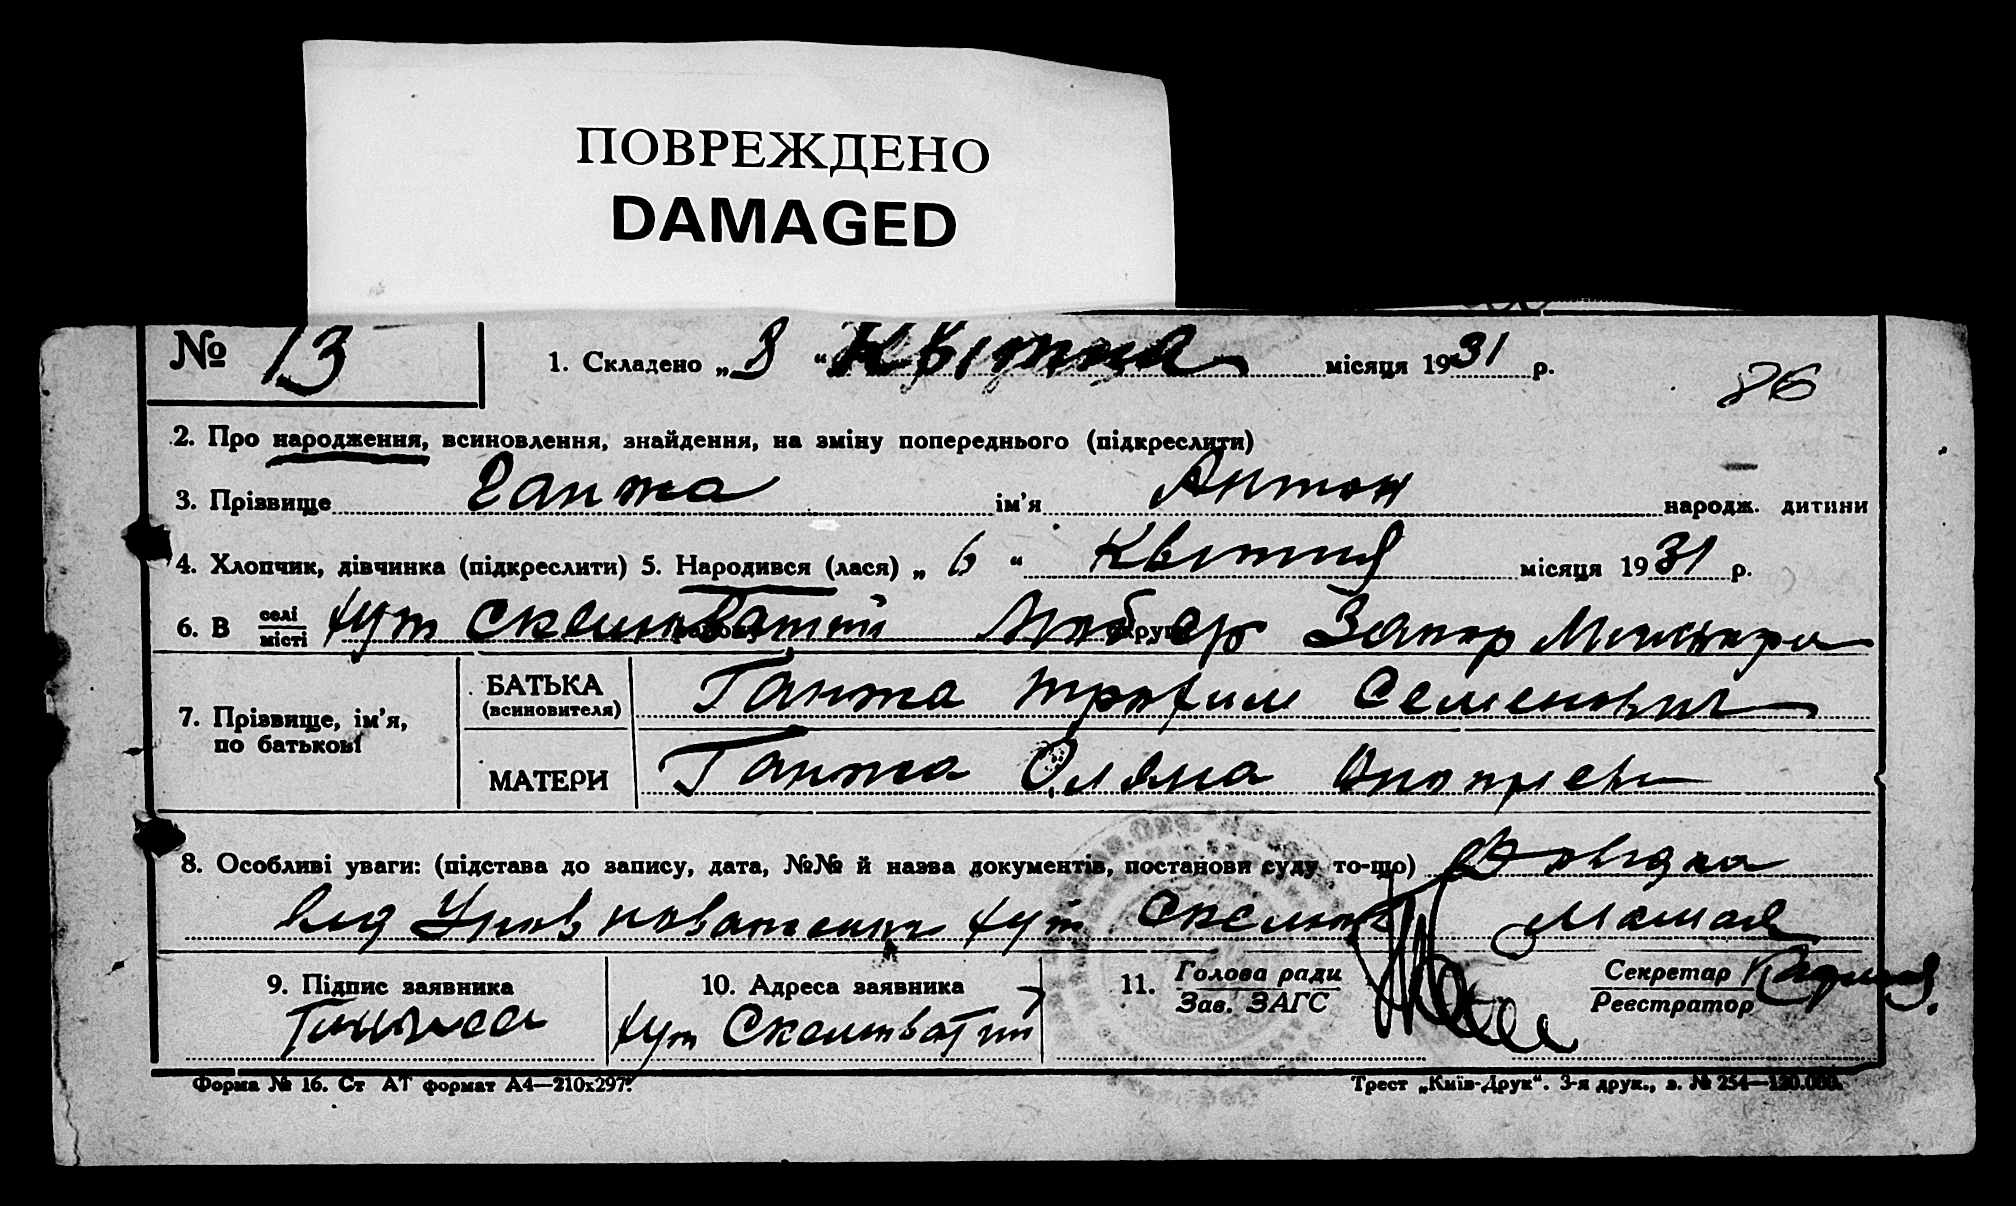 ПОВРЕЖДЕНО
DAMAGED
№ 13
1. Складено „8“ Квітня місяця 1931 р.
86
2. Про народження, всиновлення, знайдення, на зміну попереднього (підкреслити)
3. Прізвище Ганжа ім'я Антон народж. дитини
4. Хлопчик, дівчинка (підкреслити) 5. Народився (лася) „6“ Квітня місяця 1931 р.
6. В селі місті хут Скелюватий Запор
7. Прізвище, ім'я, по батькові
БАТЬКА (всиновителя) Ганжа Трофим Семенович
МАТЕРИ Ганжа Оляна
8. Особливі уваги: (підстава до запису, дата, №№ й назва документів, постанови суду то-що) Довідка
від хут
9. Підпис заявника 10. Адреса заявника 11. Голова ради Зав. ЗАГС Секретар Реєстратор
Ганжа хут Скелюватий
Форма № 16. Ст АТ формат А4—210х297. Трест „Київ-Друк“. 3-я друк., з. № 254—120.000.